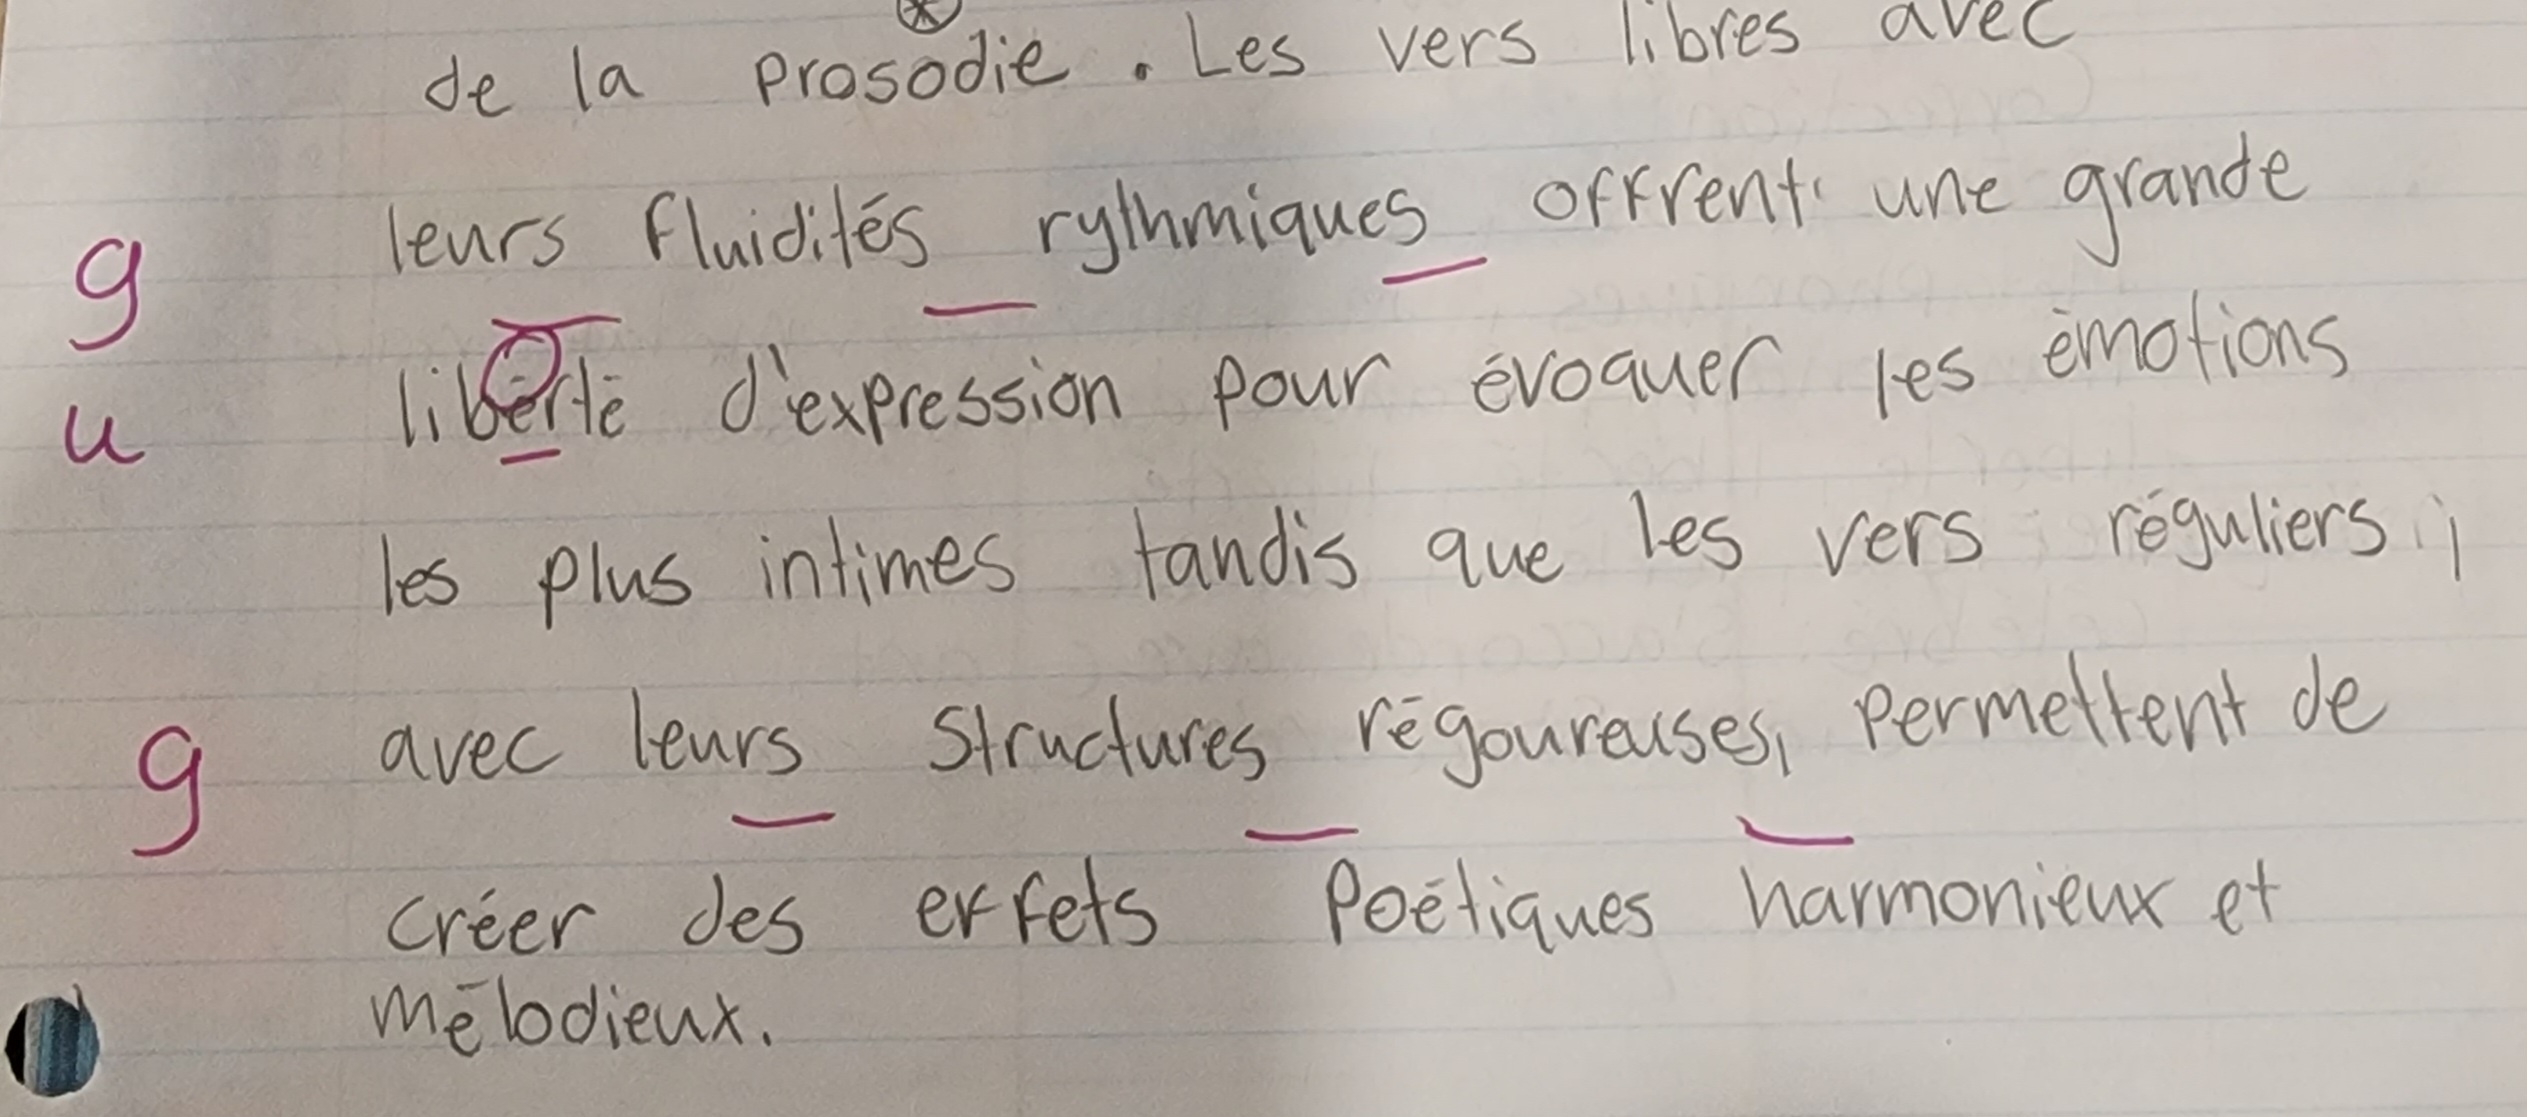 de la prosodie. Les vers libres avec
g leurs fluidités rythmiques offrent une grande
u libérté d'expression pour évoquer les émotions
les plus intimes tandis que les vers réguliers,
g avec leurs structures régoureuses, permettent de
créer des effets poétiques harmonieux et
mélodieux.